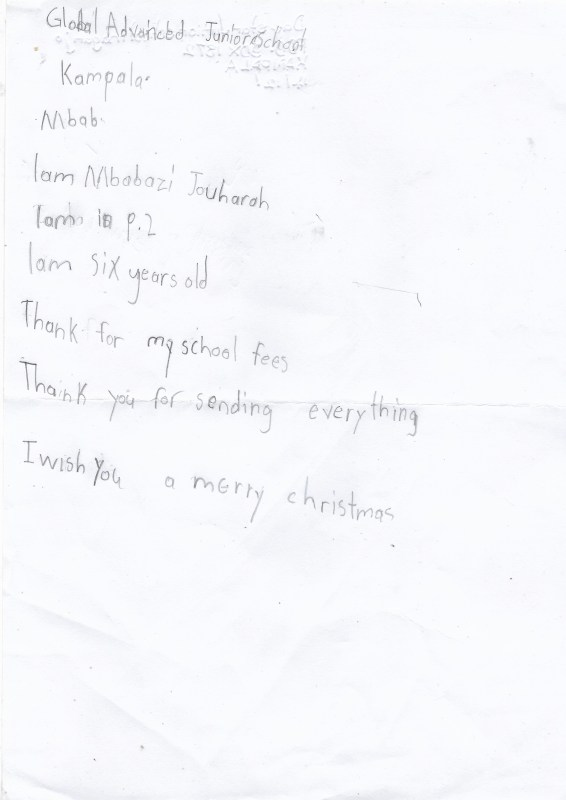 Global Advanced Junior School
Kampala
Mbab
Iam Mbabazi Jouharah
Iam in p.2
Iam six years old
Thank for my school fees
Thaink you for sending everything
I wish you a merry christmas